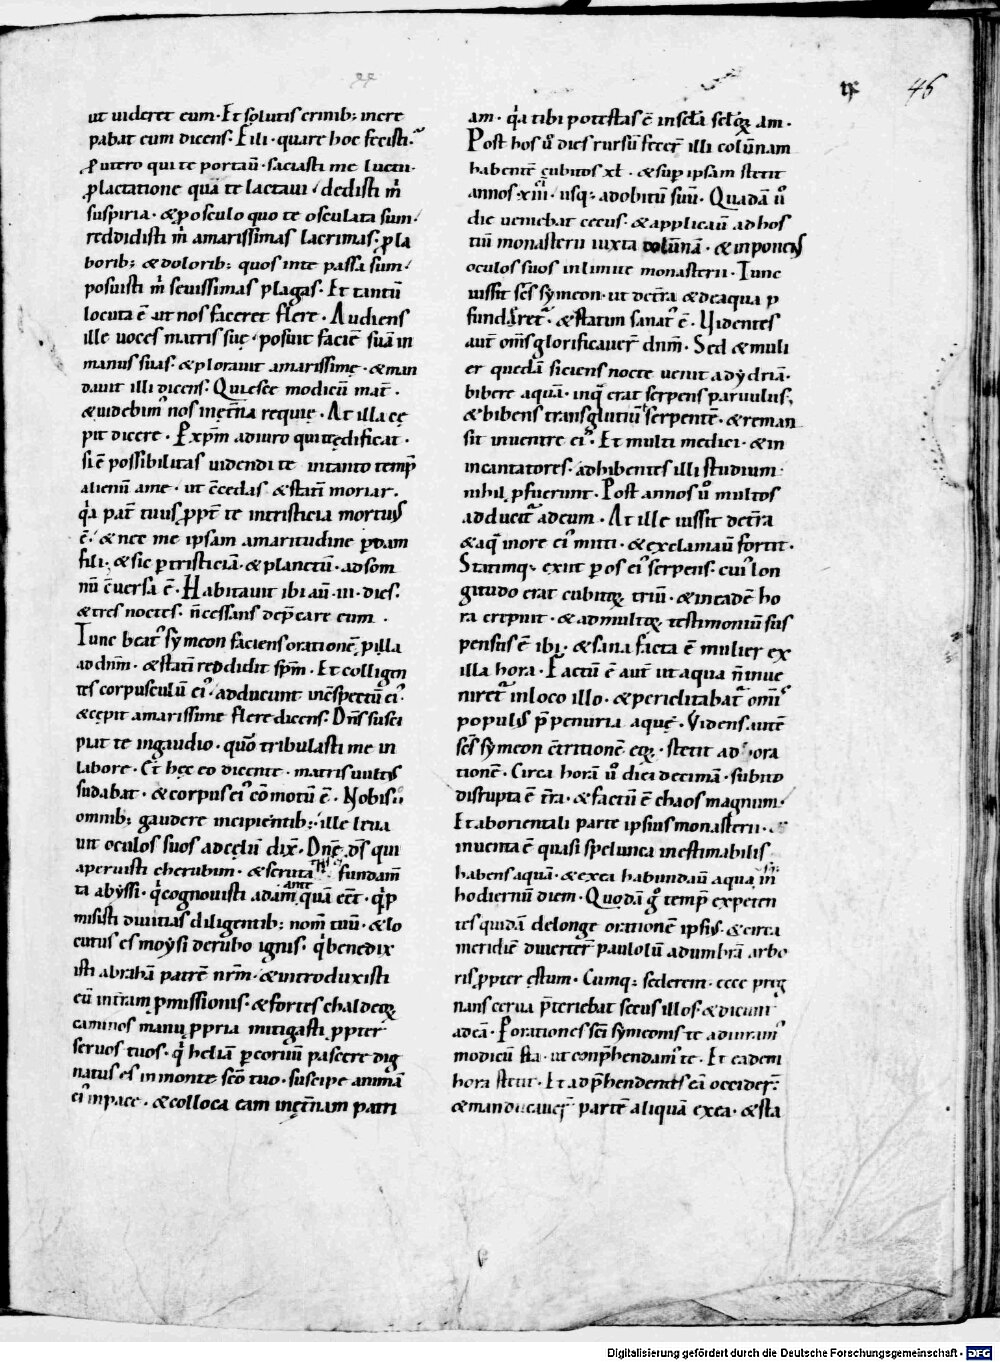 IX 46
ut uideret eum. Et solutis crinib; incre
pabat eum dicens. Fili. quare hoc fecisti?
ꝓ utero qui te portauit. saciasti me luctu.
ꝓ lactatione qua te lactaui. dedisti m̄
suspiria. & ꝓ osculo quo te osculata sum.
reddidisti m̄ amarissimas lacrimas. ꝓ la
borib; & dolorib; quos in te passa sum.
posuisti m̄ seuissimas plagas. Et tantū
locuta ē ut nos faceret flere. Audiens
ille uoces matris suę. posuit faciē suā in
manus suas. & plorauit amarissime. & man
dauit illi dicens. Quiesce modicū mat̄.
& uidebim᷒ nos in ęt̄na requie. At illa cę
pit dicere. P xp̄m adiuro qui te ędificat.
si ē possibilitas uidendi te in tanto temp̄
alienū a me. ut c̄cedas & statī moriar.
q̄a pat̄ tuus ꝓpt̄ te in tristicia mortuus
ē. & nec me ipsam amaritudine ꝑdam
fili. & sic p̄ tristiciā. & planctū. ad som
nū c̄uersa ē. Habitauit ibi aū. III. dies.
& tres noctes. n̄ cessans dep̄care eum.
Tunc beat᷒ symeon faciens orationē p̄ illa
ad dn̄m. & statī reddidit sp̄m. Et colligen
tes corpusculū ei᷒. adducunt in c̄spectū ei᷒.
& cępit amarissime flere dicens. Dn̄s susci
piat te in gaudio. quō tribulasti me in
labore. Et hęc eo dicente. matris uultus
sudabat. & corpus ei᷒ cōmotū ē. Nobis ū
omnib; gaudere incipientib; ille leua
uit oculos suos ad cęlū dix̄. Dn̄e d̄s qui
aperuisti cherubim. & scruta fundam̄
ta abyssi. q̄ cognouisti adam ante quā eēt. q̄ p̄
misisti diuitias diligentib; nom̄ tuū. & lo
cutus es moysi de rubo ignis. q̄ benedix
isti abrahā patrē nr̄m. & introduxisti
eū in t̄ram ꝓmissionis. & fortes chaldeoꝝ
caminos manu ꝓpria mitigasti ꝓpter
seruos tuos. q̄ heliā p̄ coruū pascere dig
natus es in monte sc̄o tuo. suscipe animā
ei᷒ in pace. & colloca eam in ęt̄nam patri
am. q̄a tibi potestas ē in sc̄la sc̄loꝝ am.
Post hos ū dies rursū fecer̄ illi colūnam
habentē cubitos xl. & sup ipsam stetit
annos. xiiii. usq; ad obitū suū. Quadā ū
die ueniebat cecus. & applicauit ad hos
tiū monasterii iuxta colūnā. & inponens
oculos suos in limite monasterii. Tunc
iussit sc̄s symeon. ut de t̄ra & de aqua p
fundar̄et᷒. & statim sanat᷒ ē. Uidentes
aut̄ om̄s glorificauer̄ dn̄m. Sed & muli
er quedā siciens nocte uenit ad ydriā.
bibere aquā. in q̄ erat serpens paruulus.
& bibens transglutiuit serpentē. & reman
sit in uentre ei᷒. Et multi medici. & in
incantatores. adhibentes illi studium
nihil ꝓfuerunt. Post annos ū multos
adducit᷒ ad eum. At ille iussit de t̄ra
& aq̄ in ore ei᷒ mitti. & exclamauit fortit̄.
Statimq; exiit p̄ os ei᷒ serpens. cui᷒ lon
gitudo erat cubitoꝝ triū. & in eadē ho
ra crepuit. & ad multoꝝ testimoniū sus
pensus ē ibi. & sana facta ē mulier ex
illa hora. Factū ē aut̄ ut aqua n̄ inue
niret᷒ in loco illo. & periclitabat᷒ om̄is
populus p̄ penuria aquę. Videns autē
sc̄s symeon c̄tritionē eoꝝ. stetit ad ora
tionē. Circa horā ū diei decimā. subito
disrupta ē t̄ra. & factū ē chaos magnum.
Et ab orientali parte ipsius monasterii.
inuenta ē quasi spelunca inestimabilis
habens aquā. & ex ea habundauit aqua usq; in
hodiernū diem. Quodā g̊ temp̄ expeten
tes quidā de longe orationē ipsius. & circa
meridiē diuerter̄ paululū ad umbrā arbo
ris ꝓpter ęstum. Cumq; sederent. ecce preg
nans cerua p̄teriebat secus illos. & dicunt
ad eā. P orationes sc̄i symeonis te adiuram᷒
modicū sta. ut conp̄hendam᷒ te. Et eadem
hora stetit. Et adp̄hendentes eā occider̄.
& manducauer̄ partē aliquā ex ea. & sta
Digitalisierung gefördert durch die Deutsche Forschungsgemeinschaft - DFG